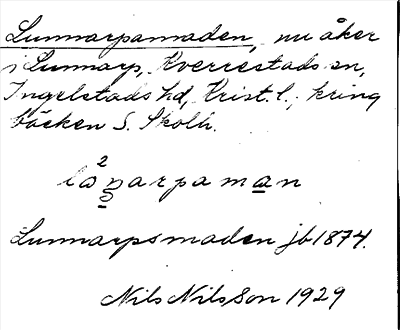 Lunnarpamaden, nu åker
i Lunnarp, Kverrestads sn,
Ingelstads hd, Krist. l., kring
bäcken S. Skolh.
Lunnarpsmaden jb 1874.
Nils Nilsson 1929